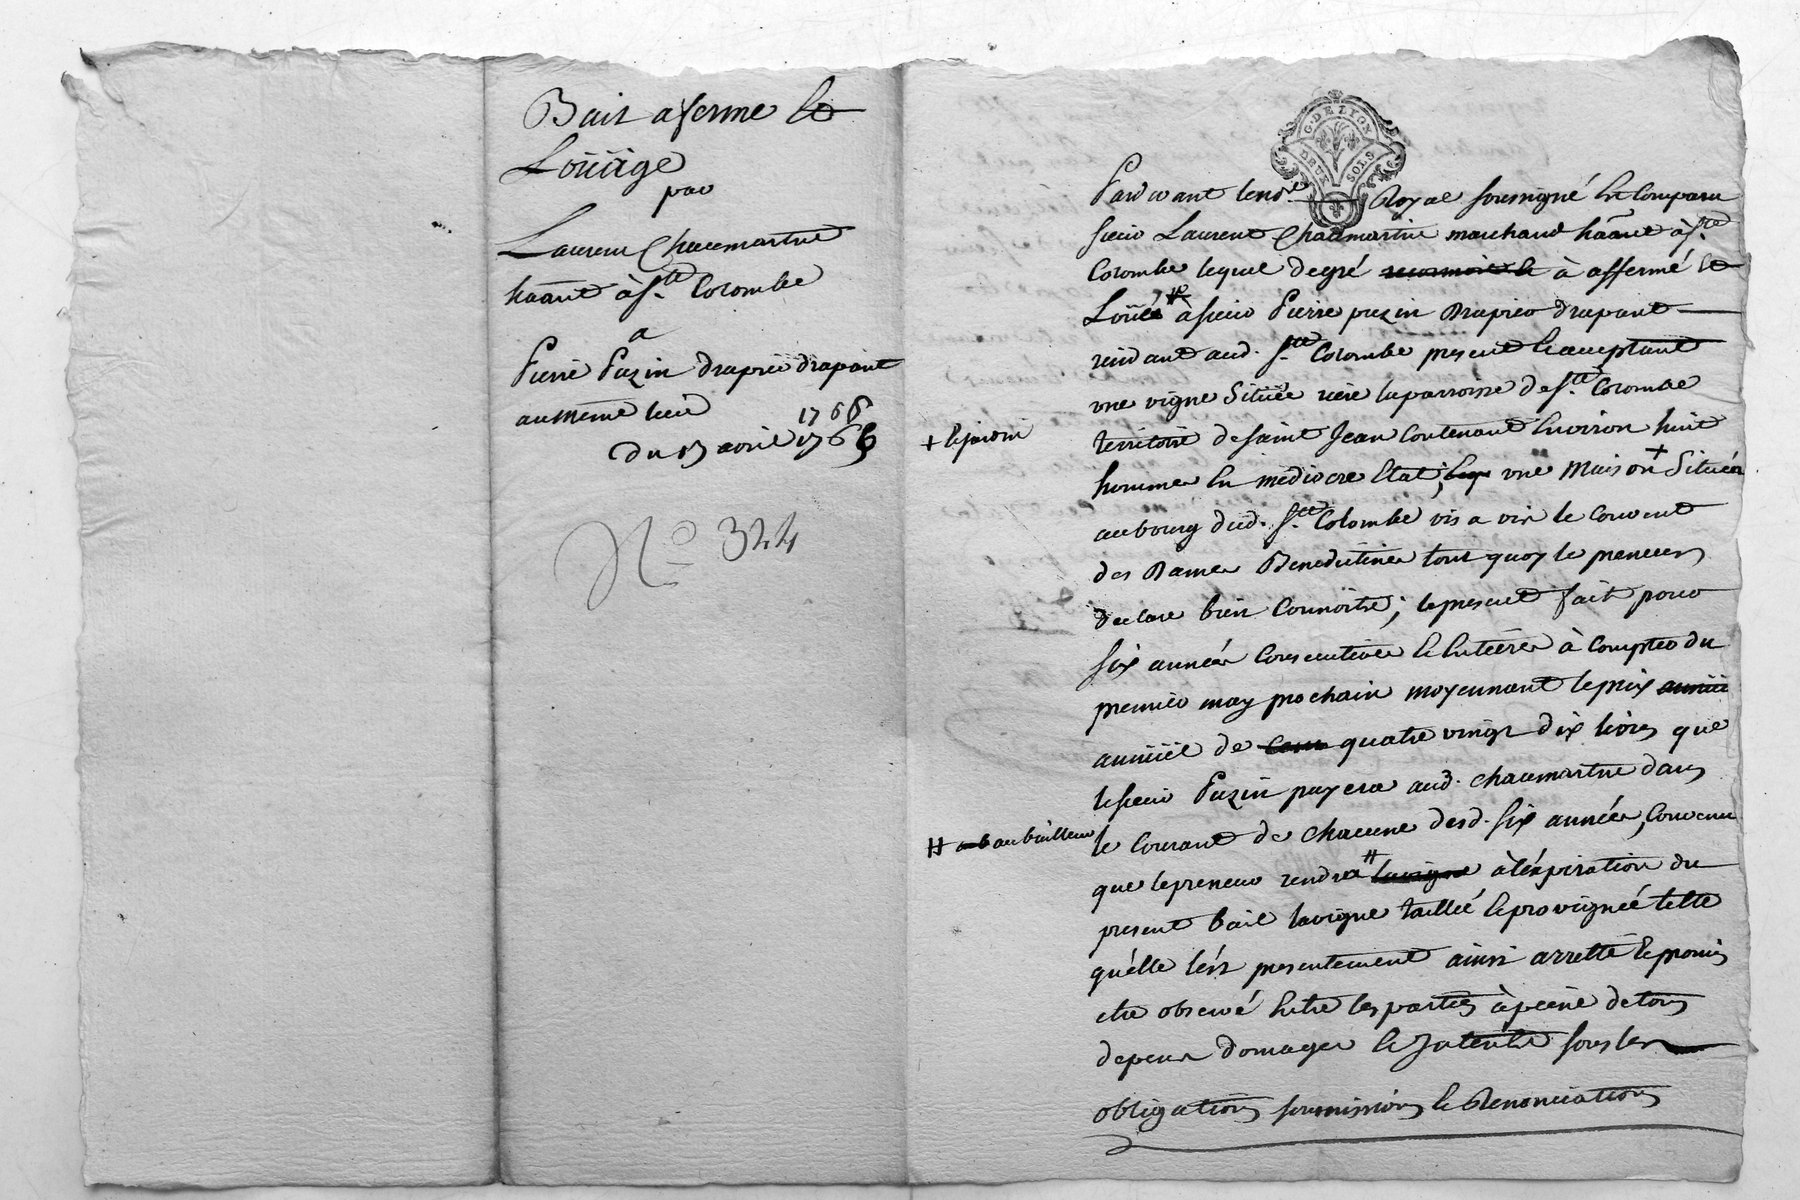 Bail a ferme et
Loüage
par
Laurent Chaumartin
haant à Ste Colombe
a
Pierre Puzin drapier drapant
au meme lieu
1766
du 13 avril 1766
No 344
G. DE LION
DEUX SOLS
Pardevant le nore Royal soussigné est comparu
sieur Laurent Chaumartin marchand haant à Ste
Colombe lequel de gré à affermé et
Loüé # a sieur Pierre puzin Drapier drapant
residant aud. Ste Colombe present et acceptant
une vigne Située riere la parroisse de Ste Colombe
territoire de saint Jean contenant environ huit
+ le jardin
hommes en mediocre Etat; une Maison + Située
au bourg dud. Ste Colombe vis a vis le couvent
des Dames Benedictines tout quoy le preneur
declare bien Connoitre; le present fait pour
six années consecutives et entieres à compter du
premier may prochain moyennant le prix
annuel de quatre vingt dix livres que
le sieur Puzin payera aud. chaumartin dans
# au bailleur
le courant de chacune desd. six années, convenu
que le preneur rendra # à léxpiration du
present bail la vigne taillée et provignée telle
quélle lést presentement ainsi arretté et promis
etre observé entre les parties à peine de tous
depens domages et Interets sous les
obligations soumissions et Renonciations